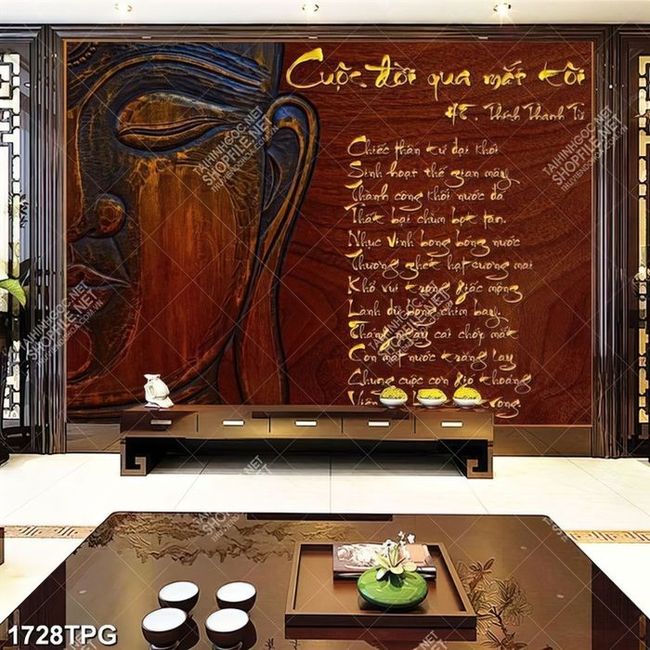 Cuộc đời qua mắt tôi
HT. Thích Thanh Từ
Chiếc thân tứ đại khối
Sinh hoạt thế gian mây
Thành công khối nước đá
Thất bại chùm bọt tan.
Nhục vinh bong bóng nước
Thương ghét hạt sương mai
Khổ vui trong giấc mộng
Lành dữ bóng chim bay.
Tháng ngày cái chớp mắt
Con mắt nước tràng tay
Chung cuộc cơn gió thoảng
TAIHINHGOC.NET
SHOPFILE.NET
THUVIENTUONG.COM.VN
1728TPG